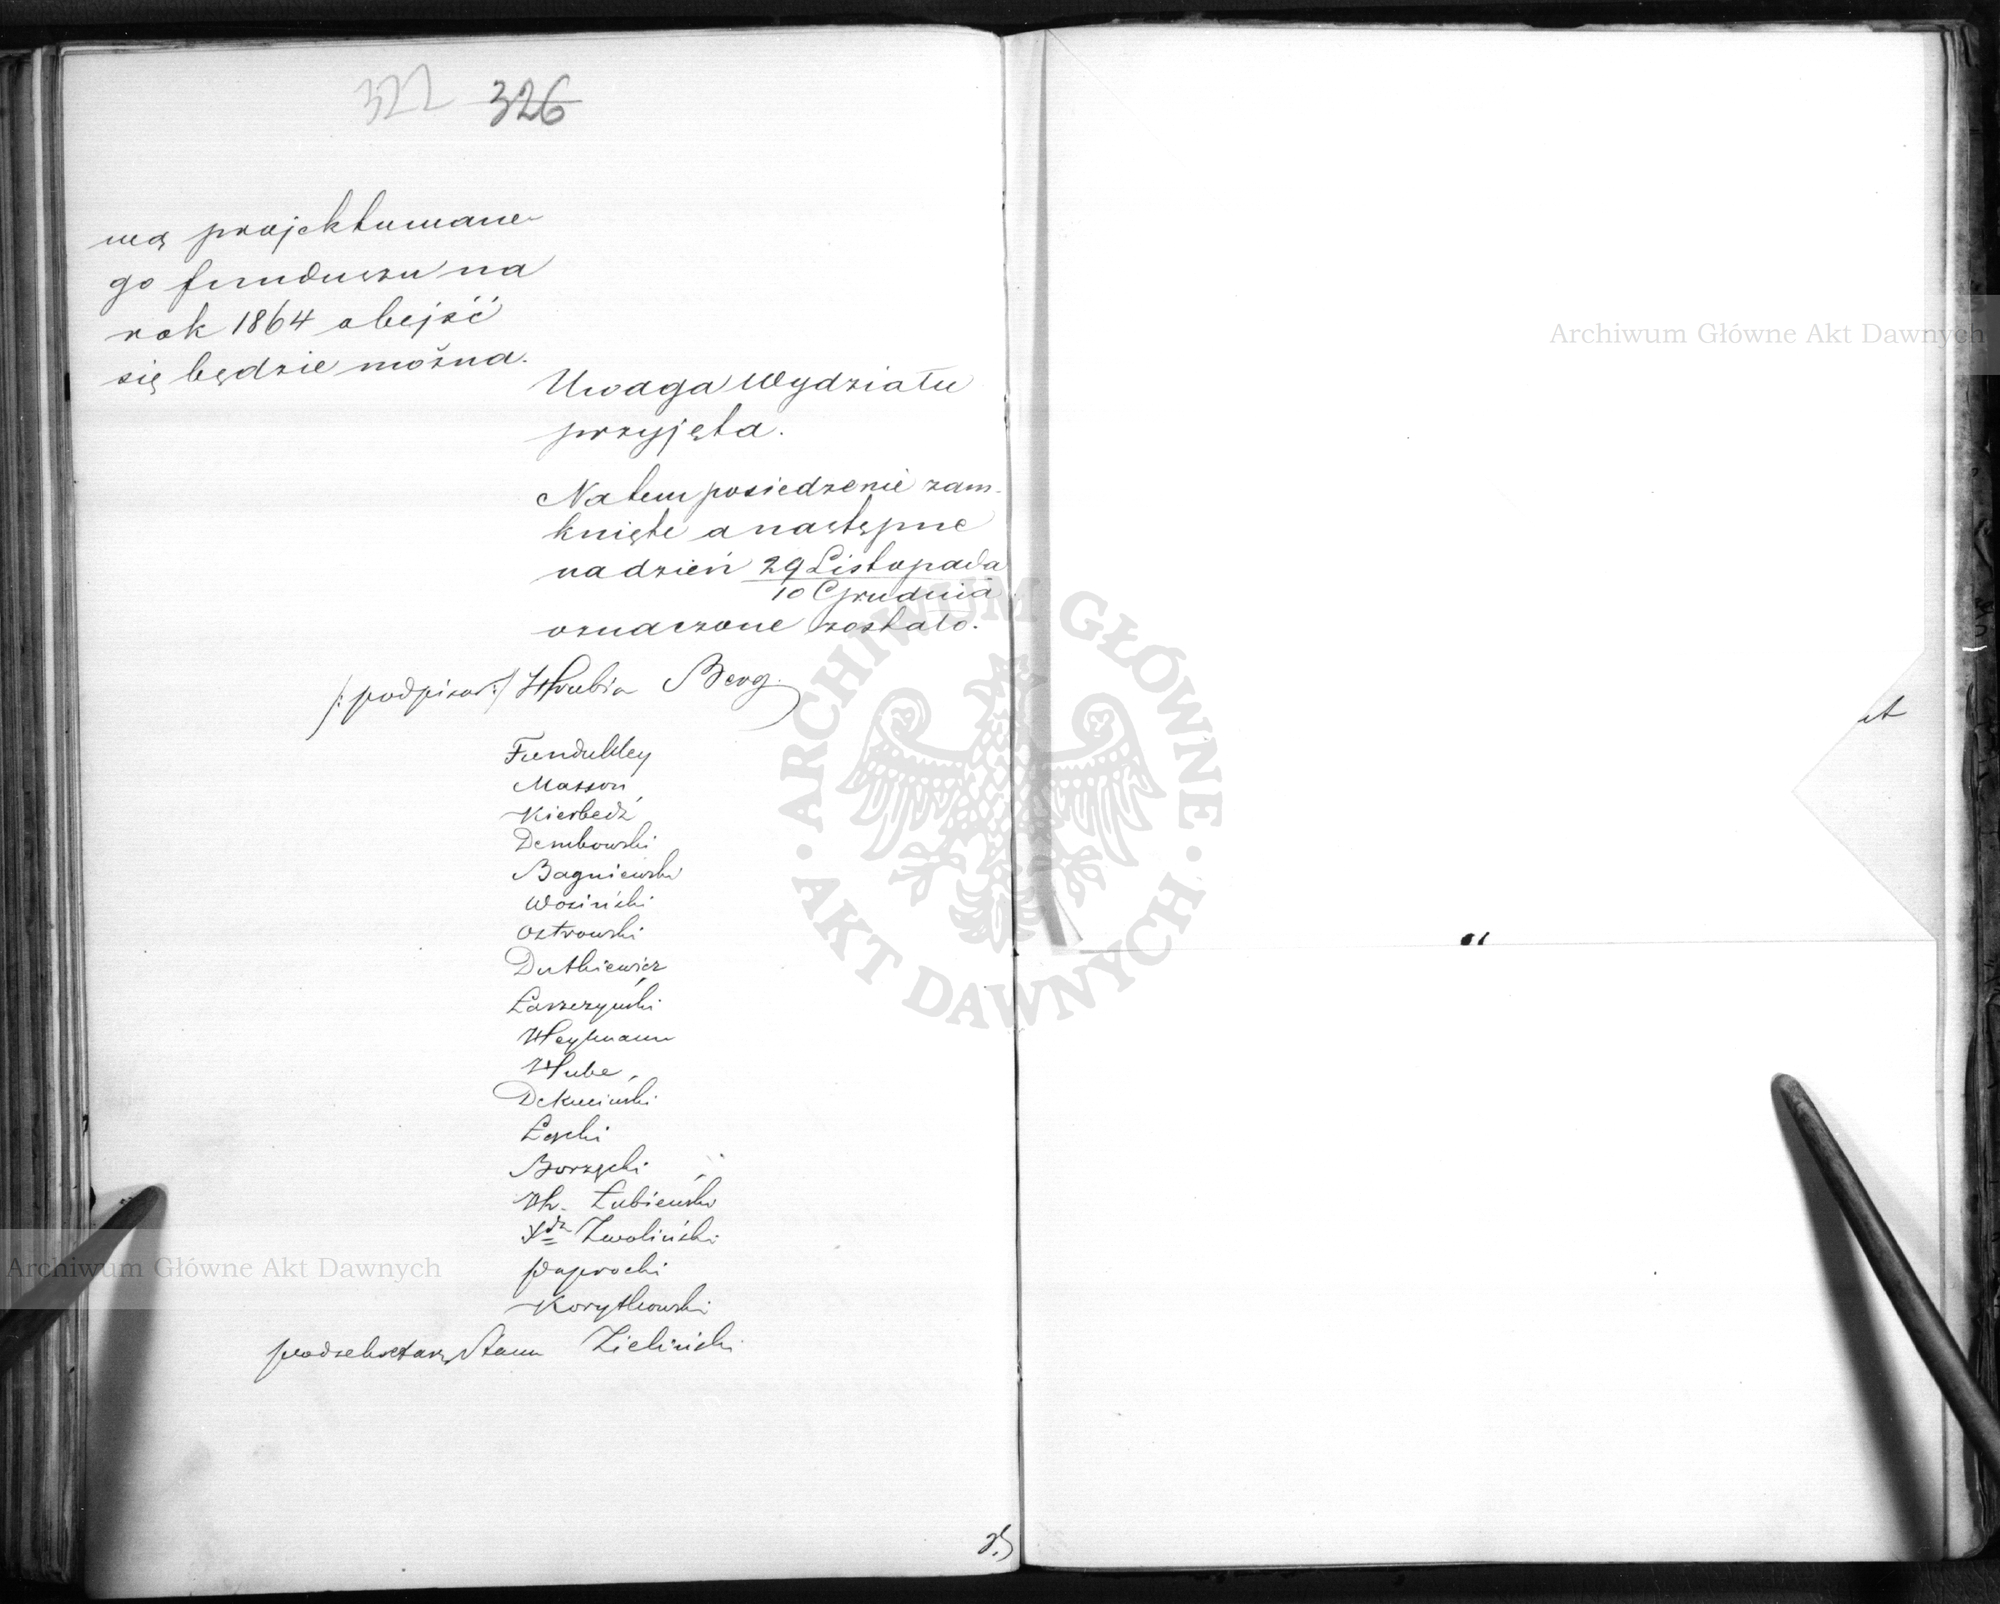 322 326
ną projektowane-
go funduszu na
rok 1864 obejść
się będzie można.
Uwaga Wydziału
przyjęta.
Na tem posiedzenie zam-
knięte a następne
na dzień 29 Listopada
10 Grudnia
oznaczone zostało.
/: podpisał :/ Hrabia Berg
Fundukley
Masson
Kierbedź
Dembowski
Bagniewski
Wosiński
Ostrowski
Dutkiewicz
Łaszczyński
Heylmann
Hube
Dekuciński
Łęski
Borzęcki
Hr. Łubieński
Xdz Zwoliński
Paprocki
Korytkowski
podsekretarz Stanu Zieliński
Archiwum Główne Akt Dawnych
ARCHIWUM GŁÓWNE
AKT DAWNYCH
Archiwum Główne Akt Dawnych